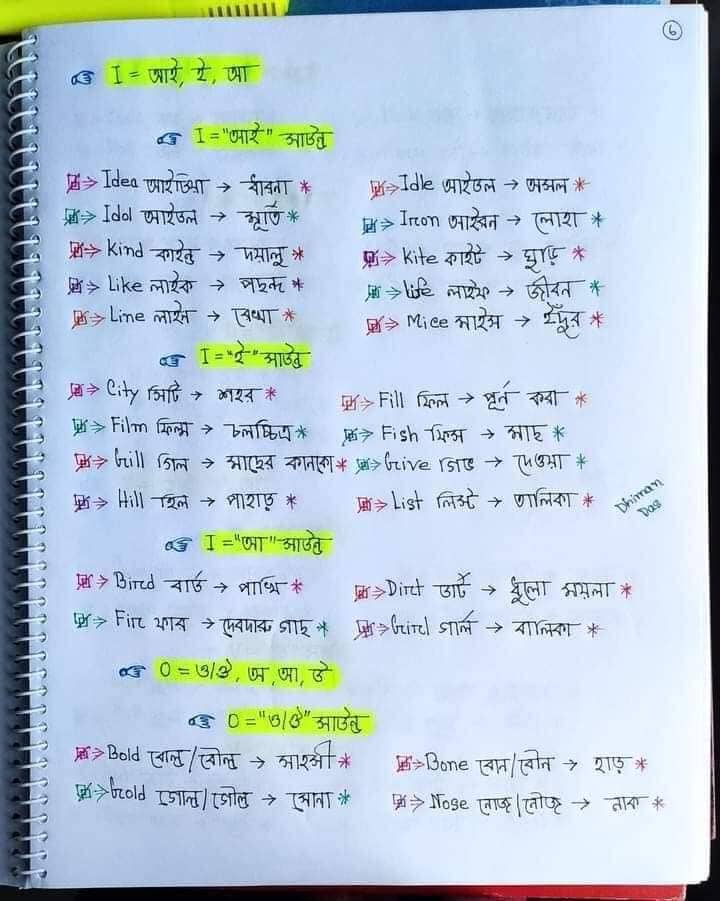 6
I = আই, ই, আ
I = "আই" সাউন্ড
Idea আইডিয়া → ধারনা * Idle আইডল → অলস *
Idol আইডল → মূর্তি * Iron আইরন → লোহা *
Kind কাইন্ড → দয়ালু * Kite কাইট → ঘুড়ি *
Like লাইক → পছন্দ * Life লাইফ → জীবন *
Line লাইন → রেখা * Mice মাইস → ইঁদুর *
I = "ই" সাউন্ড
City সিটি → শহর * Fill ফিল → পূর্ন করা *
Film ফিল্ম → চলচ্চিত্র * Fish ফিস → মাছ *
Gill গিল → মাছের কানকো * Give গিভ → দেওয়া *
Hill হিল → পাহাড় * List লিস্ট → তালিকা *
Dhiman Das
I = "আ" সাউন্ড
Bird বার্ড → পাখি * Dirt ডার্ট → ধুলো ময়লা *
Fir ফার → দেবদারু গাছ * Girl গার্ল → বালিকা *
O = ও/ঔ, অ, আ, উ
O = "ও/ঔ" সাউন্ড
Bold বোল্ড/বৌল্ড → সাহসী * Bone বোন/বৌন → হাড় *
Gold গোল্ড/গৌল্ড → সোনা * Nose নোজ/নৌজ → নাক *